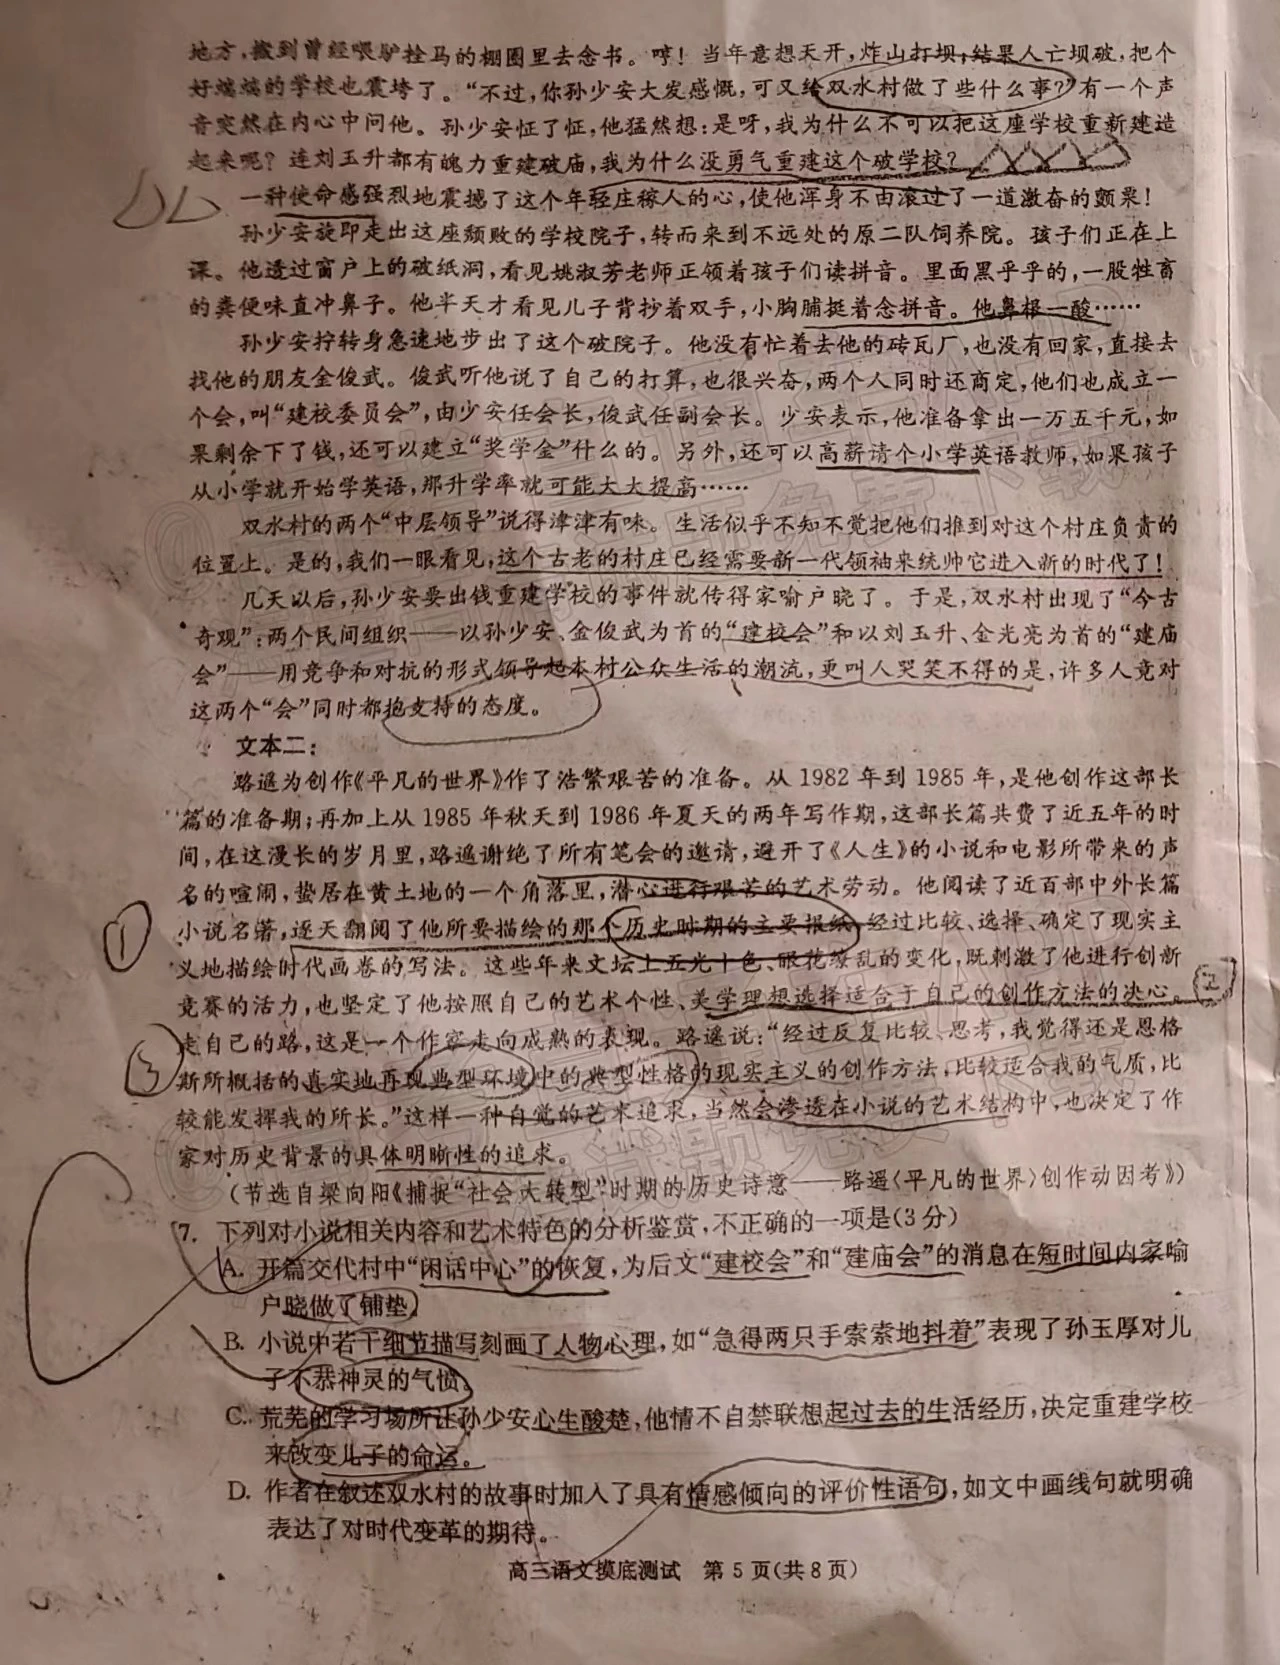 地方,搬到曾经喂驴拴马的棚圈里去念书。哼!当年意想天开,炸山打坝;结果人亡坝破,把个
好端端的学校也震垮了。“不过,你孙少安大发感慨,可又给双水村做了些什么事?”有一个声
音突然在内心中问他。孙少安怔了怔,他猛然想:是呀,我为什么不可以把这座学校重新建造
起来呢?连刘玉升都有魄力重建破庙,我为什么没勇气重建这个破学校?
一种使命感强烈地震撼了这个年轻庄稼人的心,使他浑身不由滚过了一道激奋的颤栗!
孙少安旋即走出这座颓败的学校院子,转而来到不远处的原二队饲养院。孩子们正在上
课。他透过窗户上的破纸洞,看见姚淑芳老师正领着孩子们读拼音。里面黑乎乎的,一股牲畜
的粪便味直冲鼻子。他半天才看见儿子背抄着双手,小胸脯挺着念拼音。他鼻根一酸……
孙少安拧转身急速地步出了这个破院子。他没有忙着去他的砖瓦厂,也没有回家,直接去
找他的朋友金俊武。俊武听他说了自己的打算,也很兴奋,两个人同时还商定,他们也成立一
个会,叫“建校委员会”,由少安任会长,俊武任副会长。少安表示,他准备拿出一万五千元,如
果剩余下了钱,还可以建立“奖学金”什么的。另外,还可以高薪请个小学英语教师,如果孩子
从小学就开始学英语,那升学率就可能大大提高……
双水村的两个“中层领导”说得津津有味。生活似乎不知不觉把他们推到对这个村庄负责的
位置上。是的,我们一眼看见,这个古老的村庄已经需要新一代领袖来统帅它进入新的时代了!
几天以后,孙少安要出钱重建学校的事件就传得家喻户晓了。于是,双水村出现了“今古
奇观”:两个民间组织——以孙少安、金俊武为首的“建校会”和以刘玉升、金光亮为首的“建庙
会”——用竞争和对抗的形式领导起本村公众生活的潮流,更叫人哭笑不得的是,许多人竟对
这两个“会”同时都抱支持的态度。
文本二:
路遥为创作《平凡的世界》作了浩繁艰苦的准备。从1982年到1985年,是他创作这部长
篇的准备期;再加上从1985年秋天到1986年夏天的两年写作期,这部长篇共费了近五年的时
间,在这漫长的岁月里,路遥谢绝了所有笔会的邀请,避开了《人生》的小说和电影所带来的声
名的喧闹,蛰居在黄土地的一个角落里,潜心进行艰苦的艺术劳动。他阅读了近百部中外长篇
①
小说名著,逐天翻阅了他所要描绘的那个历史时期的主要报纸,经过比较、选择、确定了现实主
义地描绘时代画卷的写法。这些年来文坛上五光十色、眼花缭乱的变化,既刺激了他进行创新
竞赛的活力,也坚定了他按照自己的艺术个性、美学理想选择适合于自己的创作方法的决心。②
走自己的路,这是一个作家走向成熟的表现。路遥说:“经过反复比较、思考,我觉得还是恩格
③
斯所概括的真实地再现典型环境中的典型性格的现实主义的创作方法,比较适合我的气质,比
较能发挥我的所长。”这样一种自觉的艺术追求,当然会渗透在小说的艺术结构中,也决定了作
家对历史背景的具体明晰性的追求。
(节选自梁向阳《捕捉“社会大转型”时期的历史诗意——路遥〈平凡的世界〉创作动因考》)
7. 下列对小说相关内容和艺术特色的分析鉴赏,不正确的一项是(3分)
A. 开篇交代村中“闲话中心”的恢复,为后文“建校会”和“建庙会”的消息在短时间内家喻
户晓做了铺垫。
B. 小说中若干细节描写刻画了人物心理,如“急得两只手索索地抖着”表现了孙玉厚对儿
子不恭神灵的气愤。
C. 荒芜的学习场所让孙少安心生酸楚,他情不自禁联想起过去的生活经历,决定重建学校
来改变儿子的命运。
D. 作者在叙述双水村的故事时加入了具有情感倾向的评价性语句,如文中画线句就明确
表达了对时代变革的期待。
高三语文摸底测试 第5页(共8页)